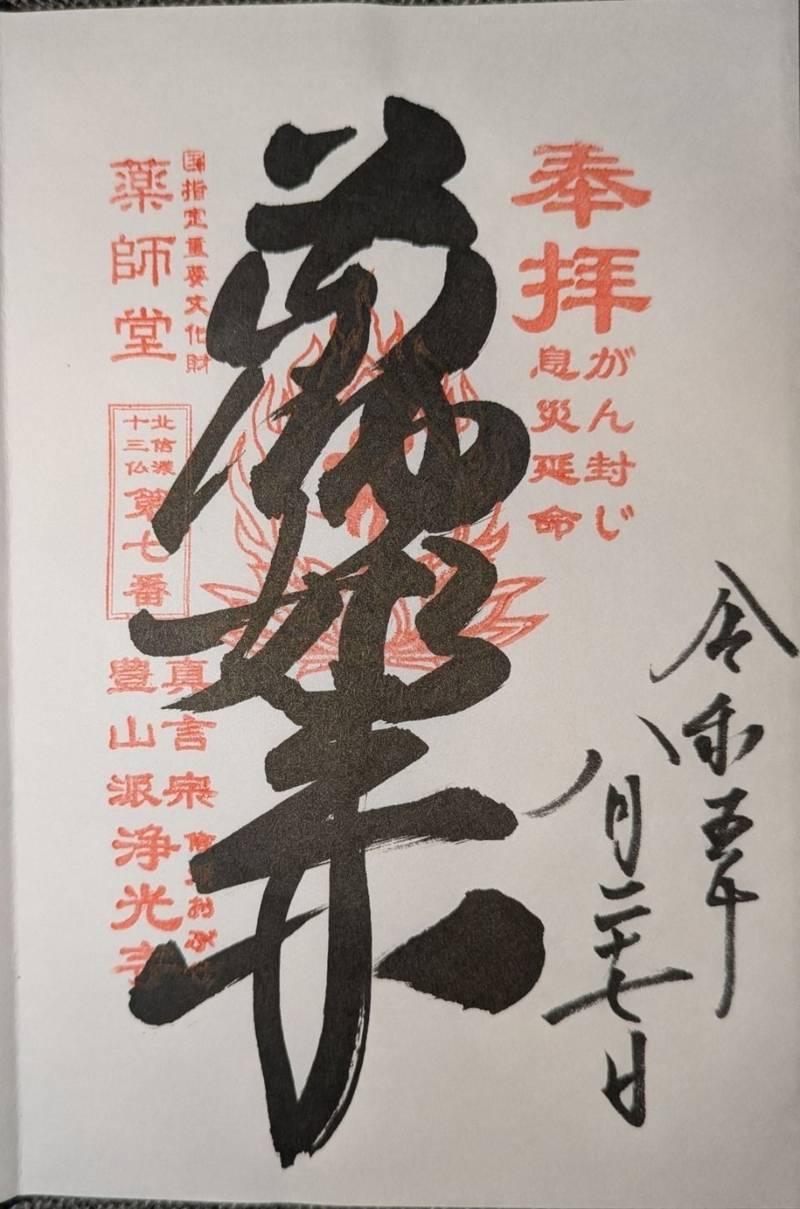 奉拝
がん封じ
息災延命
令和五年
八月二十七日
薬師如来
国指定重要文化財
薬師堂
北信濃
十三仏
第七番
真言宗
豊山派
信州おぶせ
浄光寺